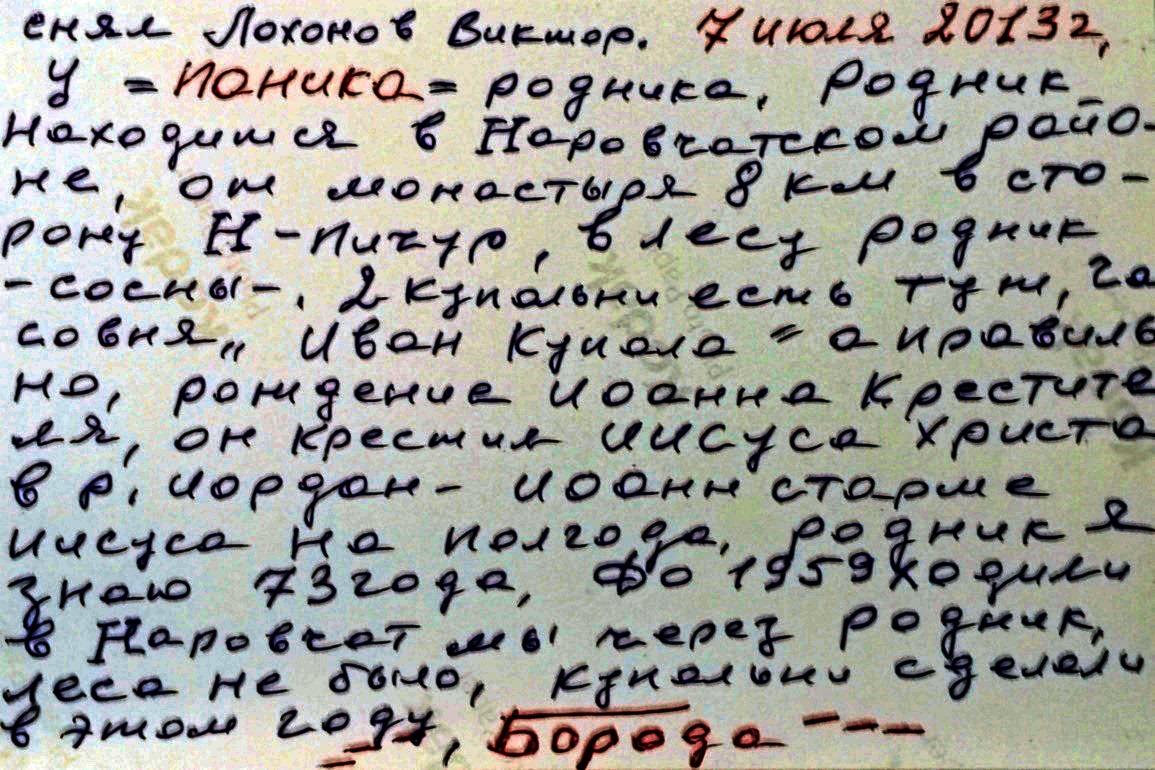 снял Лохонов Виктор. 7 июля 2013г,
У =ПАНИКА= родника, Родник
находится в Наровчатском райо-
не, от монастыря 8 км в сто-
рону Н-Пичур, в лесу родник
-сосны-. 2 купальни есть тут, ча
совня „ Иван Купала " а правиль
но, рождение Иоанна Крестите
ля, он крестил Иисуса Христа
в р. Иордан- Иоанн старше
Иисуса на полгода, родник я
знаю 73 года, до 1959 ходили
в Наровчат мы через родник,
леса не было, купальни сделали
в этом году, Борода ---